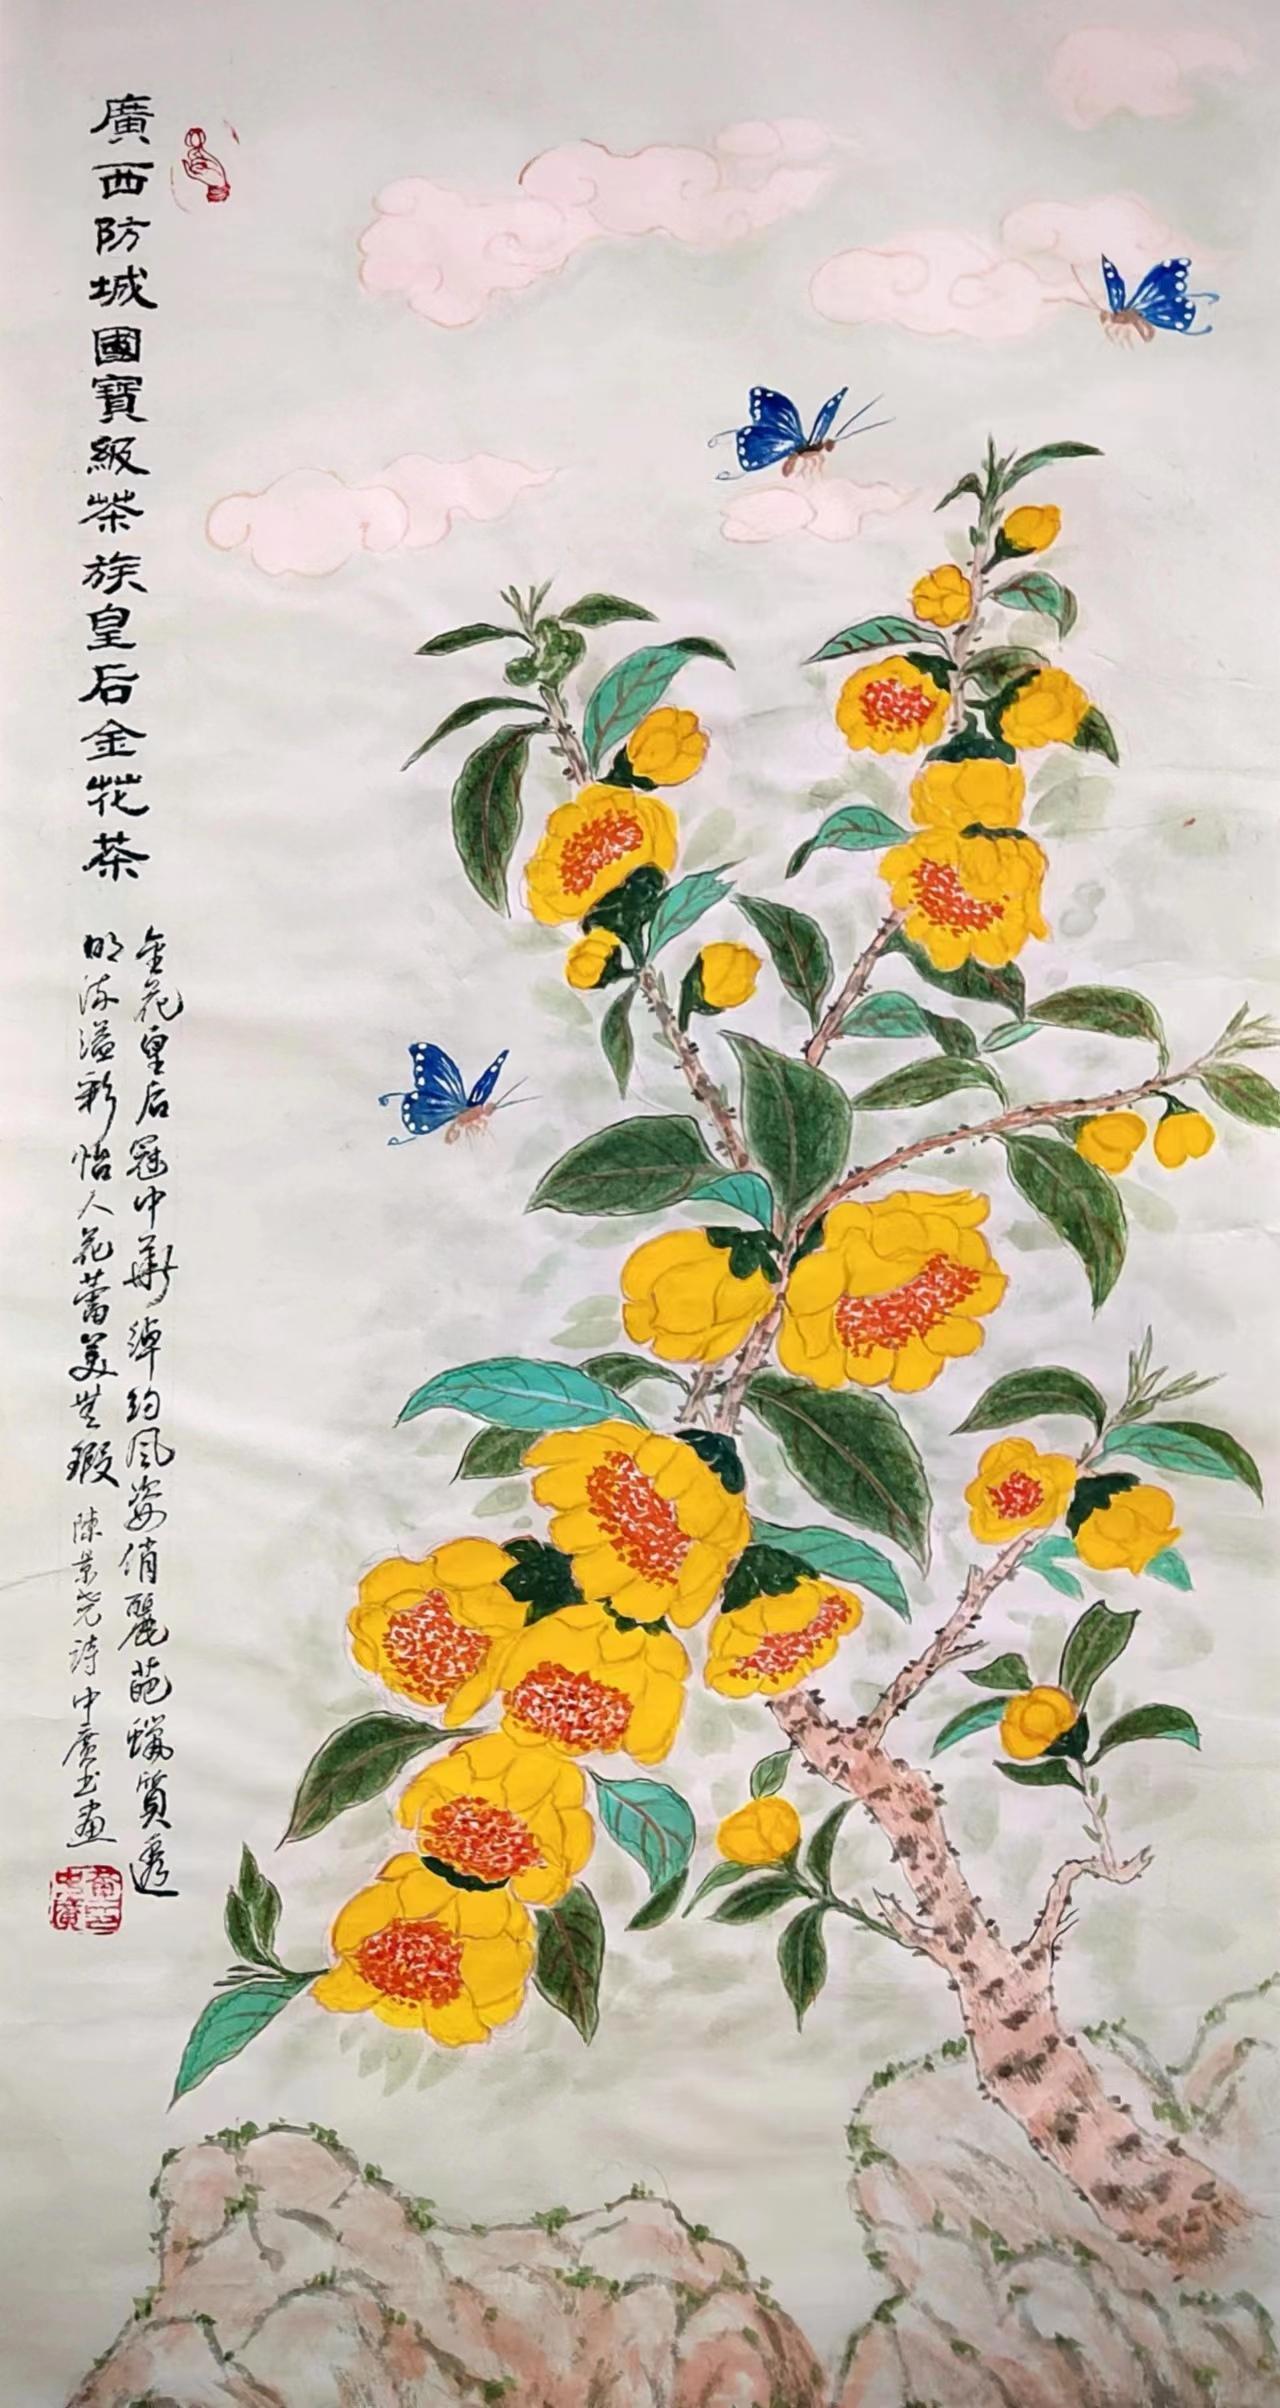 廣西防城國寶級茶族皇后金花茶
金花皇后冠中華綽約風姿俏麗葩蠟質透
明流溢彩怡人花蕾美無瑕
陳景堯詩中廣書畫